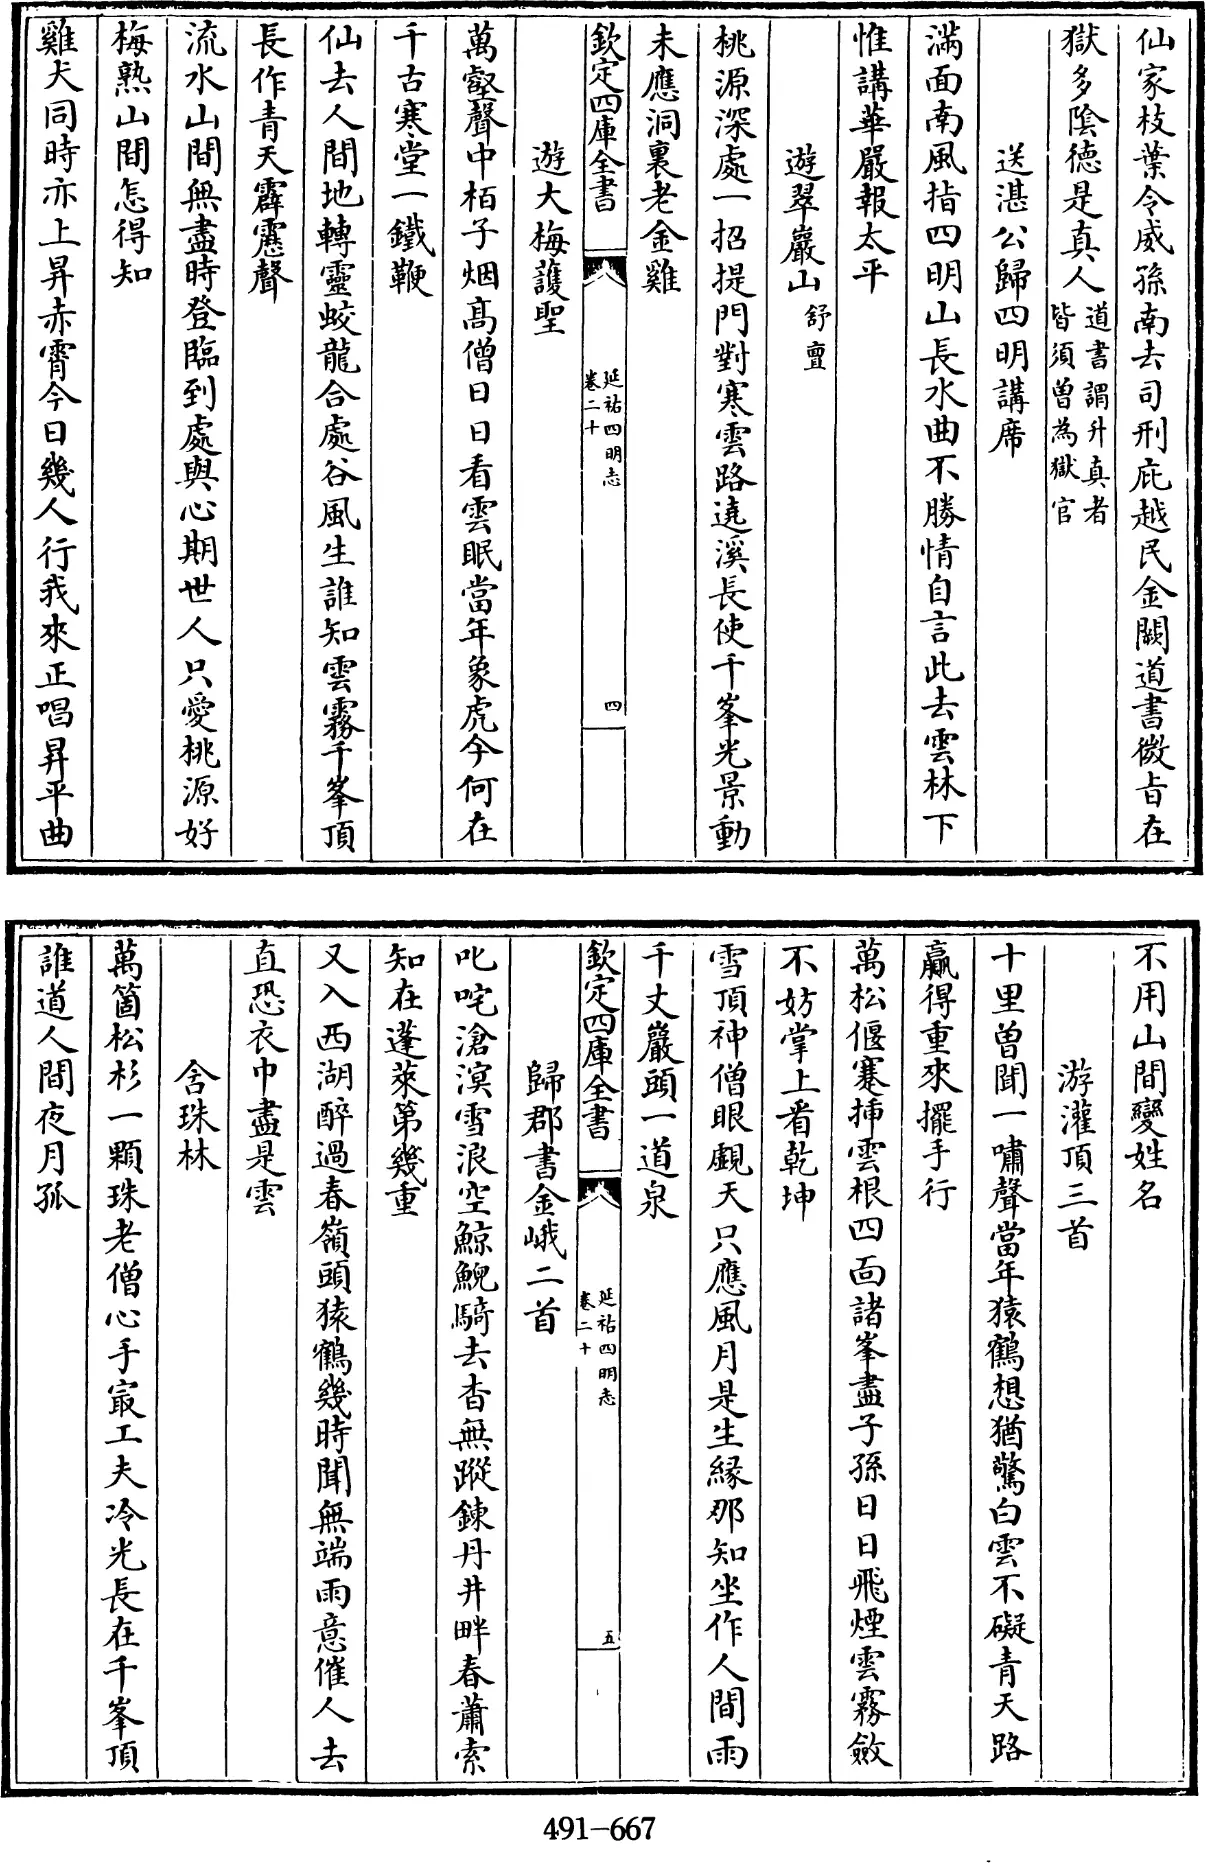 仙家枝葉令威孫南去司刑庇越民金闕道書微旨在
獄多陰德是真人道書謂升真者皆須曽為獄官
送湛公歸四明講席
滿面南風指四明山長水曲不勝情自言此去雲林下
惟講華嚴報太平
遊翠巖山舒亶
桃源深處一招提門對寒雲路遶溪長使千峯光景動
未應洞裏老金雞
欽定四庫全書
延祐四明志
卷二十
四
遊大梅護聖
萬壑聲中栢子烟高僧日日看雲眠當年象虎今何在
千古寒堂一鐵鞭
仙去人間地轉靈蛟龍合處谷風生誰知雲霧千峯頂
長作青天霹靂聲
流水山間無盡時登臨到處與心期世人只愛桃源好
梅熟山間怎得知
雞犬同時亦上昇赤霄今日幾人行我來正唱昇平曲
不用山間變姓名
游灌頂三首
十里曽聞一嘯聲當年猿鶴想猶驚白雲不礙青天路
贏得重來擺手行
萬松偃蹇挿雲根四面諸峯盡子孫日日飛煙雲霧斂
不妨掌上看乾坤
雪頂神僧眼覷天只應風月是生緣那知坐作人間雨
千丈巖頭一道泉
欽定四庫全書
延祐四明志
卷二十
五
歸郡書金峨二首
叱咤滄溟雪浪空鯨鯢騎去杳無蹤鍊丹井畔春蕭索
知在蓬萊第幾重
又入西湖醉過春嶺頭猿鶴幾時聞無端雨意催人去
直恐衣巾盡是雲
含珠林
萬箇松杉一顆珠老僧心手㝡工夫冷光長在千峯頂
誰道人間夜月孤
491-667